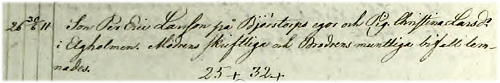 26 30/6 11 Son Per Eric Larsson på Björstorps egor och Pig. Christina Larsd:r
i Elgholmen. Modrens skriftliga och Brodrens muntliga bifall lem-
nades.
25 + 32 +